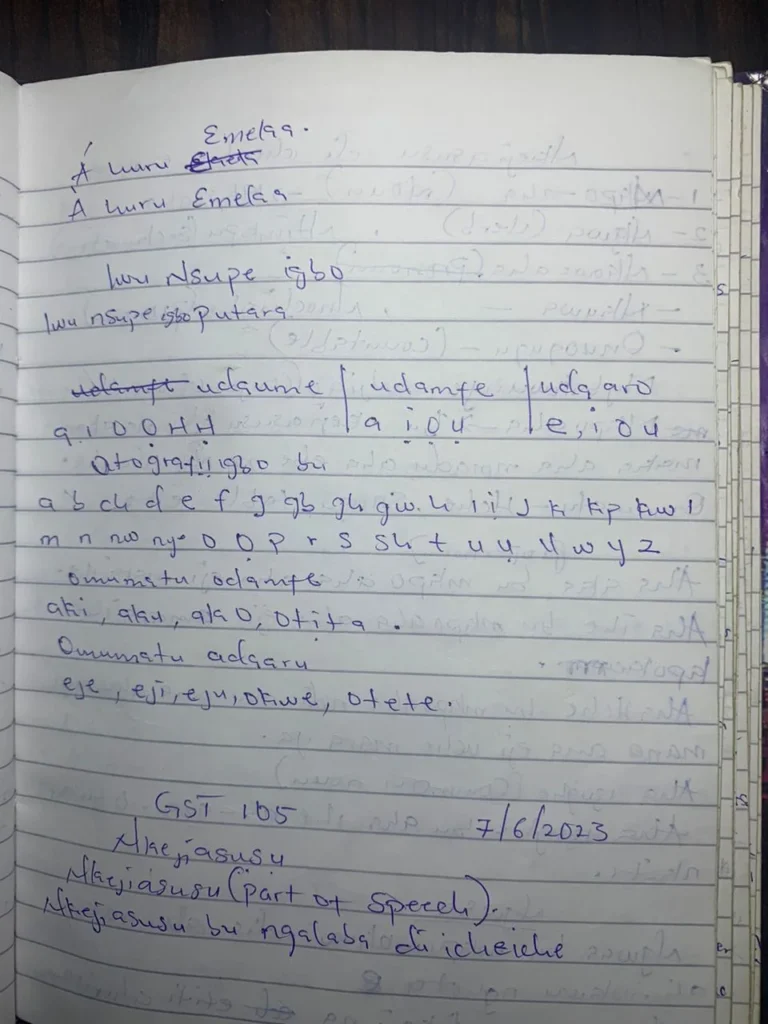 Emelaa.
Á huru
Á huru Emelaa
Iwu Nsupe igbo
Iwu nsupe igbo putara
udaume | udamfe | udaaro
a.i O O H H | a ị ọ ụ | e, i o u
Otografii igbo bu
a b ch d e f g gb gh gw. h i ị J k kp kw l
m n nw ny o ọ p r s sh t u ụ v w y z
Omumatu odamfe
aki, aku, aka O, Otita.
Omumatu adaaru
eje, eji, eju, okwe, otete.
GST 105 7/6/2023
Nkejiasusu
Nkejiasusu (part of speech).
Nkejiasusu bu ngalaba di icheiche